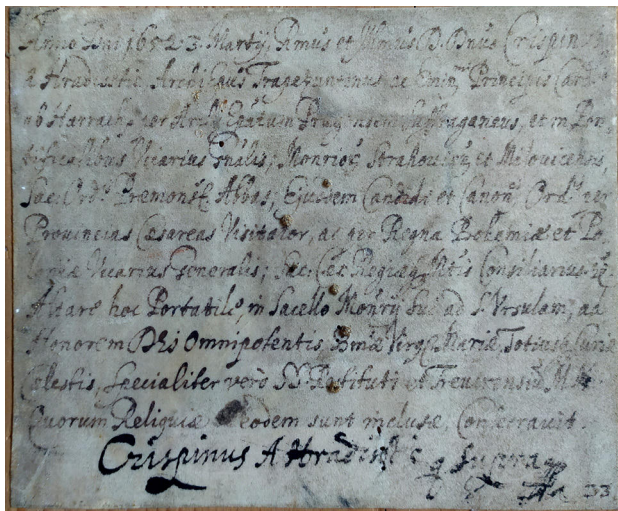 Anno Dni 1652 3. Martij Rmus et Illmus D. Dnus Crispinus
à Hradistie Archiepus Trapezuntinus ac Emin: Principis Card:
ab Harrach per Archi Epatum Pragensem Suffraganeus, et in Pon,
tificalibus Vicarius Gnalis; Monriorū Strahoviensis et Milovicensis
Sac: Ord: Præmonst: Abbas; Ejusdem Candidi et Canon: Ord: per
Provincias Cæsareas Visitator, ac per Regna Bohemiæ et Po,
loniæ Vicarius Generalis; Sac: Cæs: Regiæq Mtis Consiliarius
Altare hoc Portatile, in Sacello Monrij Sui ad S. Ursulam, ad
Honorem DEI Omnipotentis Bmæ Virg: Mariæ, Totius Curiæ
Cælestis, specialiter verò SS. Restituti et Treverensiū M.M.
Quorum Reliquiæ eodem sunt inclusæ, Consecravit.
Crispinus A Hradistie q supra
33